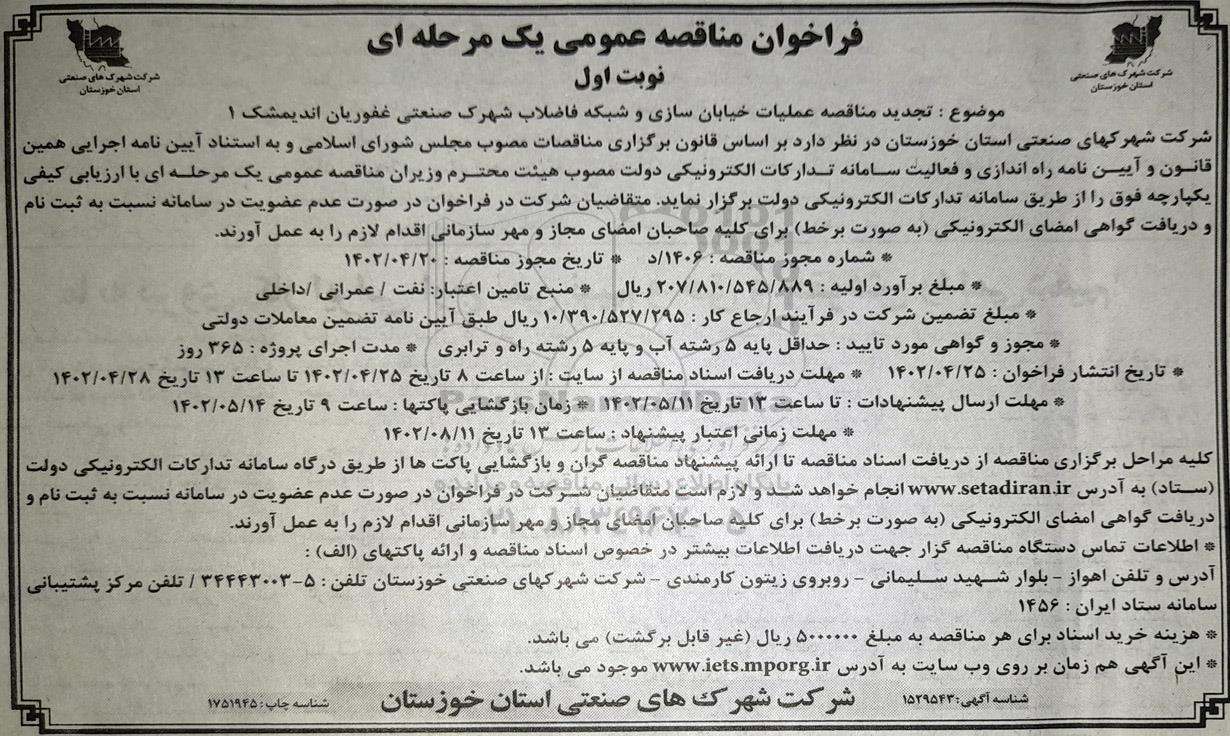 فراخوان مناقصه عمومی یک مرحله ای
نوبت اول
شرکت شهرک های صنعتی
استان خوزستان
شرکت شهرک های صنعتی
استان خوزستان
موضوع : تجدید مناقصه عملیات خیابان سازی و شبکه فاضلاب شهرک صنعتی غفوریان اندیمشک ۱
شرکت شهرکهای صنعتی استان خوزستان در نظر دارد بر اساس قانون برگزاری مناقصات مصوب مجلس شورای اسلامی و به استناد آیین نامه اجرایی همین
قانون و آیین نامه راه اندازی و فعالیت سامانه تدارکات الکترونیکی دولت مصوب هیئت محترم وزیران مناقصه عمومی یک مرحله ای با ارزیابی کیفی
یکپارچه فوق را از طریق سامانه تدارکات الکترونیکی دولت برگزار نماید. متقاضیان شرکت در فراخوان در صورت عدم عضویت در سامانه نسبت به ثبت نام
و دریافت گواهی امضای الکترونیکی (به صورت برخط) برای کلیه صاحبان امضای مجاز و مهر سازمانی اقدام لازم را به عمل آورند.
* شماره مجوز مناقصه : ۱۴۰۶/د * تاریخ مجوز مناقصه : ۱۴۰۲/۰۴/۲۰
* مبلغ برآورد اولیه : ۲۰۷/۸۱۰/۵۴۵/۸۸۹ ریال * منبع تامین اعتبار: نفت / عمرانی /داخلی
* مبلغ تضمین شرکت در فرآیند ارجاع کار : ۱۰/۳۹۰/۵۲۷/۲۹۵ ریال طبق آیین نامه تضمین معاملات دولتی
* مجوز و گواهی مورد تایید : حداقل پایه ۵ رشته آب و پایه ۵ رشته راه و ترابری * مدت اجرای پروژه : ۳۶۵ روز
* تاریخ انتشار فراخوان : ۱۴۰۲/۰۴/۲۵ * مهلت دریافت اسناد مناقصه از سایت : از ساعت ۸ تاریخ ۱۴۰۲/۰۴/۲۵ تا ساعت ۱۳ تاریخ ۱۴۰۲/۰۴/۲۸
* مهلت ارسال پیشنهادات : تا ساعت ۱۳ تاریخ ۱۴۰۲/۰۵/۱۱ * زمان بازگشایی پاکتها : ساعت ۹ تاریخ ۱۴۰۲/۰۵/۱۴
* مهلت زمانی اعتبار پیشنهاد : ساعت ۱۳ تاریخ ۱۴۰۲/۰۸/۱۱
کلیه مراحل برگزاری مناقصه از دریافت اسناد مناقصه تا ارائه پیشنهاد مناقصه گران و بازگشایی پاکت ها از طریق درگاه سامانه تدارکات الکترونیکی دولت
(ستاد) به آدرس www.setadiran.ir انجام خواهد شد و لازم است متقاضیان شرکت در فراخوان در صورت عدم عضویت در سامانه نسبت به ثبت نام و
دریافت گواهی امضای الکترونیکی (به صورت برخط) برای کلیه صاحبان امضای مجاز و مهر سازمانی اقدام لازم را به عمل آورند.
* اطلاعات تماس دستگاه مناقصه گزار جهت دریافت اطلاعات بیشتر در خصوص اسناد مناقصه و ارائه پاکتهای (الف) :
آدرس و تلفن اهواز - بلوار شهید سلیمانی - روبروی زیتون کارمندی - شرکت شهرکهای صنعتی خوزستان تلفن : ۵-۳۴۴۴۳۰۰۳ / تلفن مرکز پشتیبانی
سامانه ستاد ایران : ۱۴۵۶
* هزینه خرید اسناد برای هر مناقصه به مبلغ ۵۰۰۰۰۰۰ ریال (غیر قابل برگشت) می باشد.
* این آگهی هم زمان بر روی وب سایت به آدرس www.iets.mporg.ir موجود می باشد.
شناسه آگهی: ۱۵۲۹۵۴۳
شرکت شهرک های صنعتی استان خوزستان
شناسه چاپ: ۱۷۵۱۹۴۵